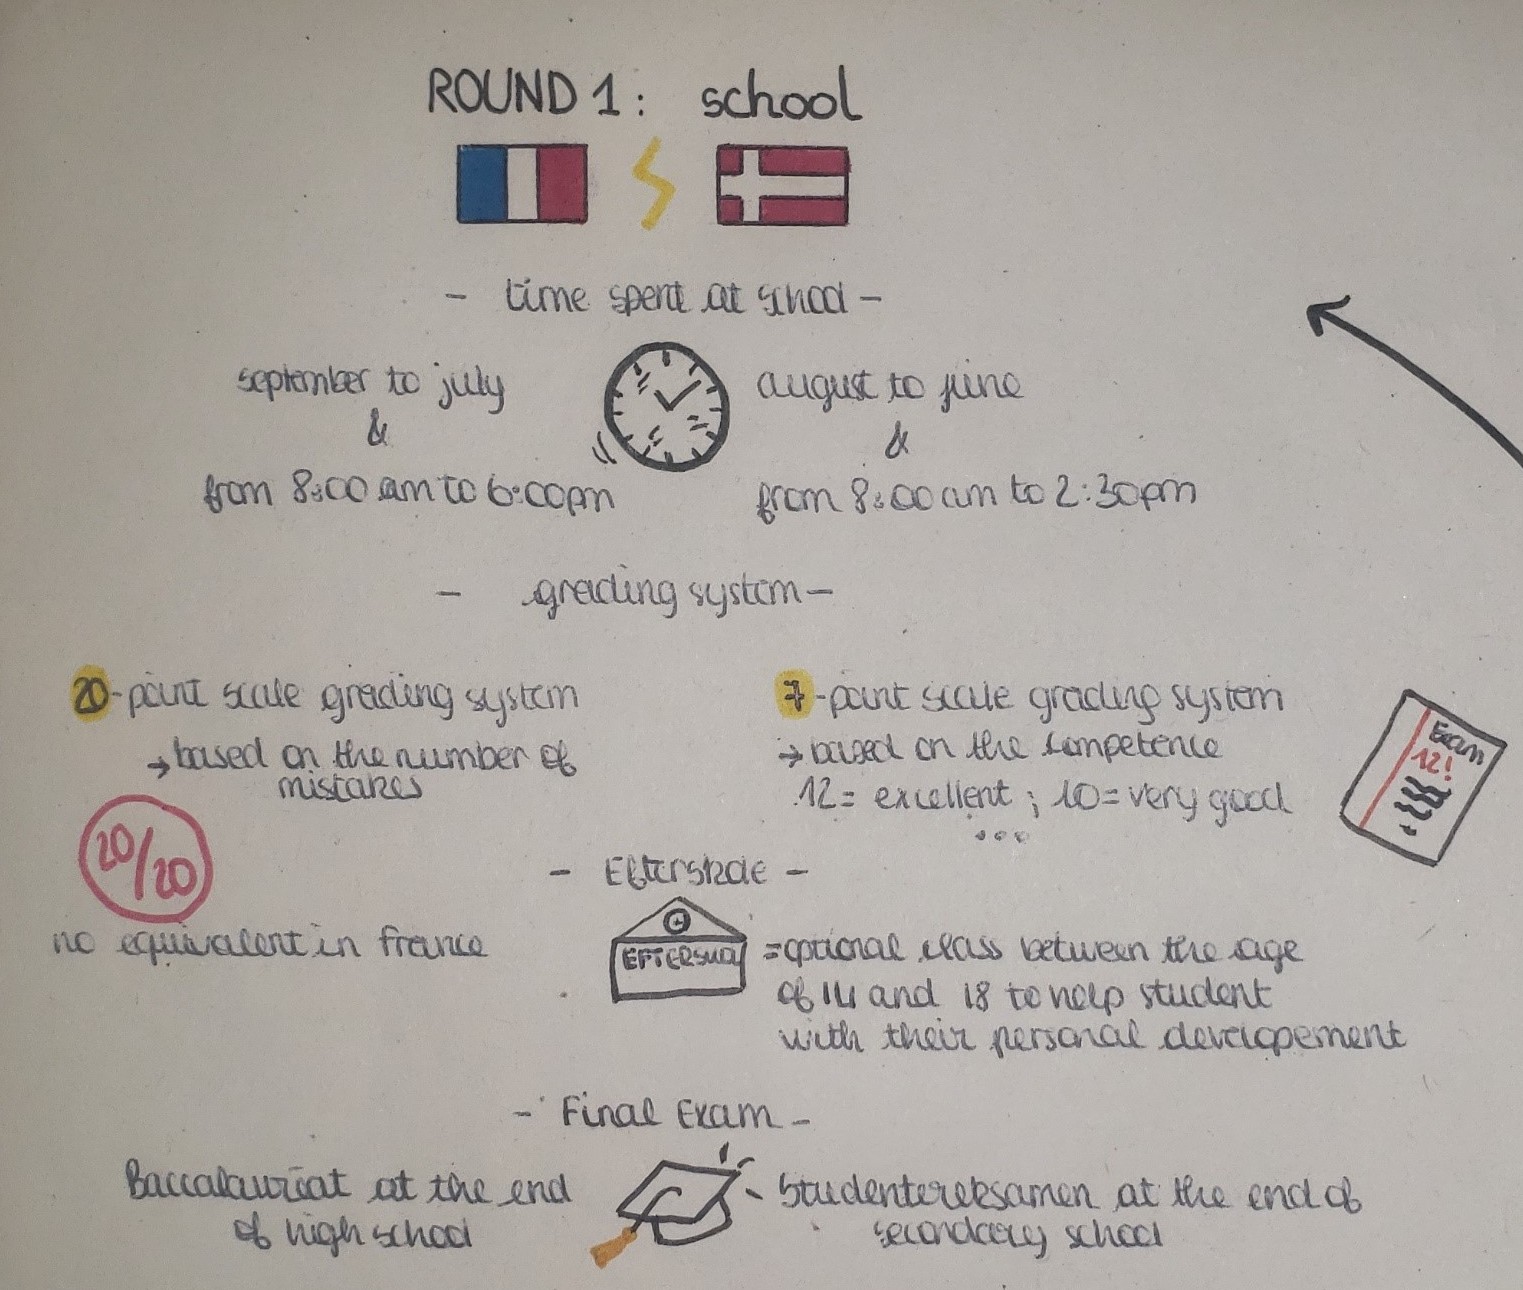 ROUND 1: school
- time spent at school -
september to july
&
from 8:00 am to 6:00pm
august to june
&
from 8:00 am to 2:30pm
- grading system -
20-point scale grading system
→ based on the number of
mistakes
20/20
7-point scale grading system
→ based on the competence
12 = excellent ; 10 = very good
...
Exam
12!
- Efterskole -
no equivalent in france
= optional class between the age
of 14 and 18 to help student
with their personal developement
- Final Exam -
Baccalauréat at the end
of high school
Studentereksamen at the end of
secondary school